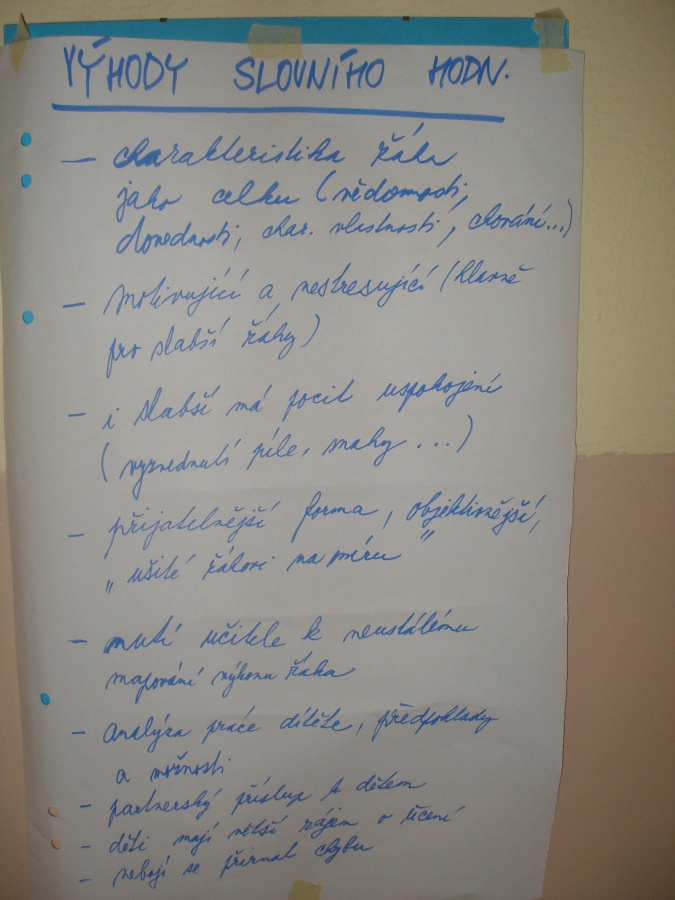 VÝHODY SLOVNÍHO HODN.
— charakteristika žáka
jako celku (vědomosti,
dovednosti, char. vlastnosti, chování...)
— motivující a nestresující (hlavně
pro slabší žáky)
— i slabší má pocit uspokojení
(vyzvednutí píle, snahy ...)
— přijatelnější forma, objektivnější,
„ušité žákovi na míru"
— nutí učitele k neustálému
mapování výkonu žáka
- analýza práce dítěte, předpoklady
a možnosti
- partnerský přístup k dětem
- děti mají větší zájem o učení
- nebojí se přiznat chybu